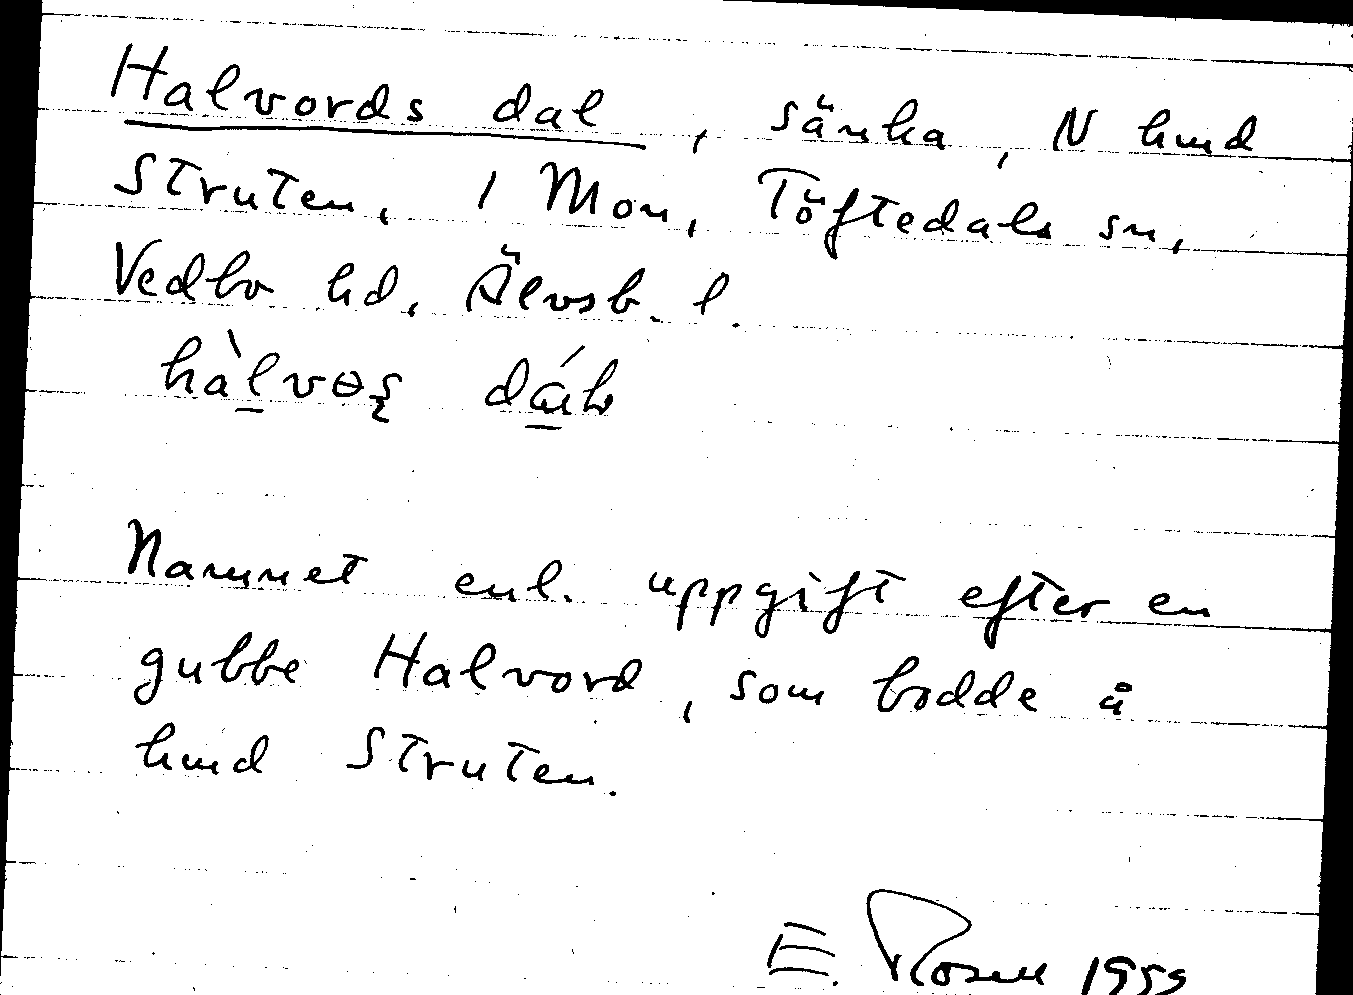 Halvords dal, sänka, N hmd
Struten, 1 Mon, Töftedals sn,
Vedbo hd, Älvsb. l.
Namnet enl. uppgift efter en
gubbe Halvord, som bodde å
hmd Struten.
E. Rosell 1955